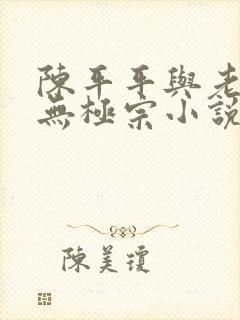 陳平平與老
無極宗小說
陳美瓊